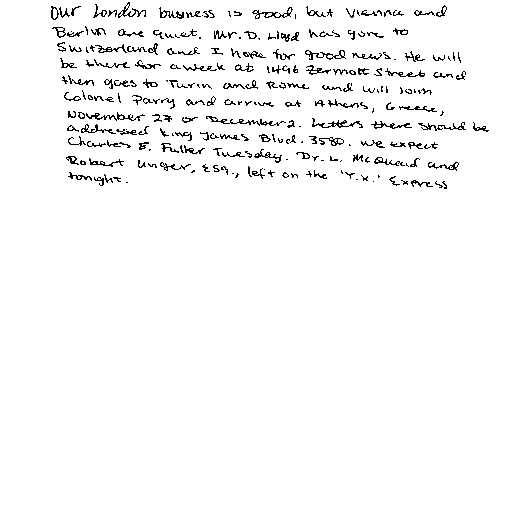 Our London business is good, but Vienna and
Berlin are quiet. Mr. D. Lloyd has gone to
Switzerland and I hope for good news. He will
be there for a week at 1496 Zermott Street and
then goes to Turin and Rome and will join
Colonel Parry and arrive at Athens, Greece,
November 27 or December 2. Letters there should be
addressed King James Blvd. 3580. We expect
Charles E. Fuller Tuesday. Dr. L. McQuaid and
Robert Unger, Esq., left on the 'Y.X.' Express
tonight.